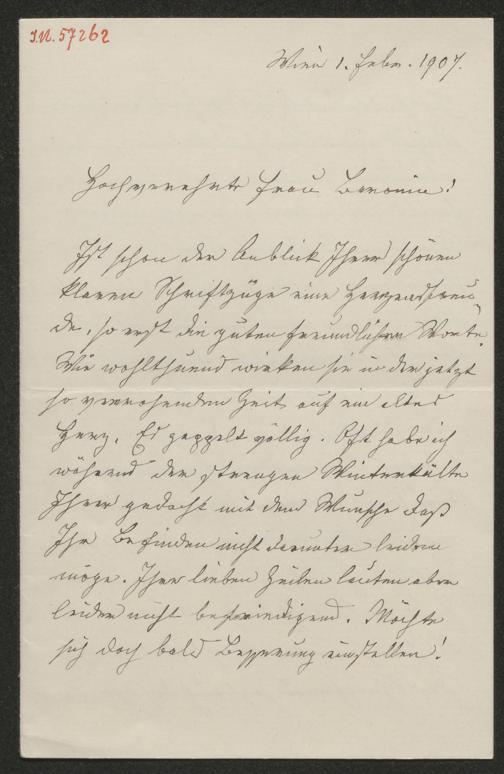 I.N. 57262
Wien 1. Febr. 1907.
Hochverehrte Frau Baronin!
Ist schon der Anblick Ihrer schönen
klaren Schriftzüge eine Herzensfreu-
de, so erst die guten freundlichen Worte.
Wie wohlthuend wirken sie in der jetzt
so verrohenden Zeit auf ein altes
Herz. Es zappelt völlig. Oft habe ich
während der strengen Winterkälte
Ihrer gedacht mit dem Wunsche daß
Ihr Befinden nicht darunter leiden
möge. Ihre lieben Zeilen lauten aber
leider nicht befriedigend. Möchte
sich doch bald Besserung einstellen!